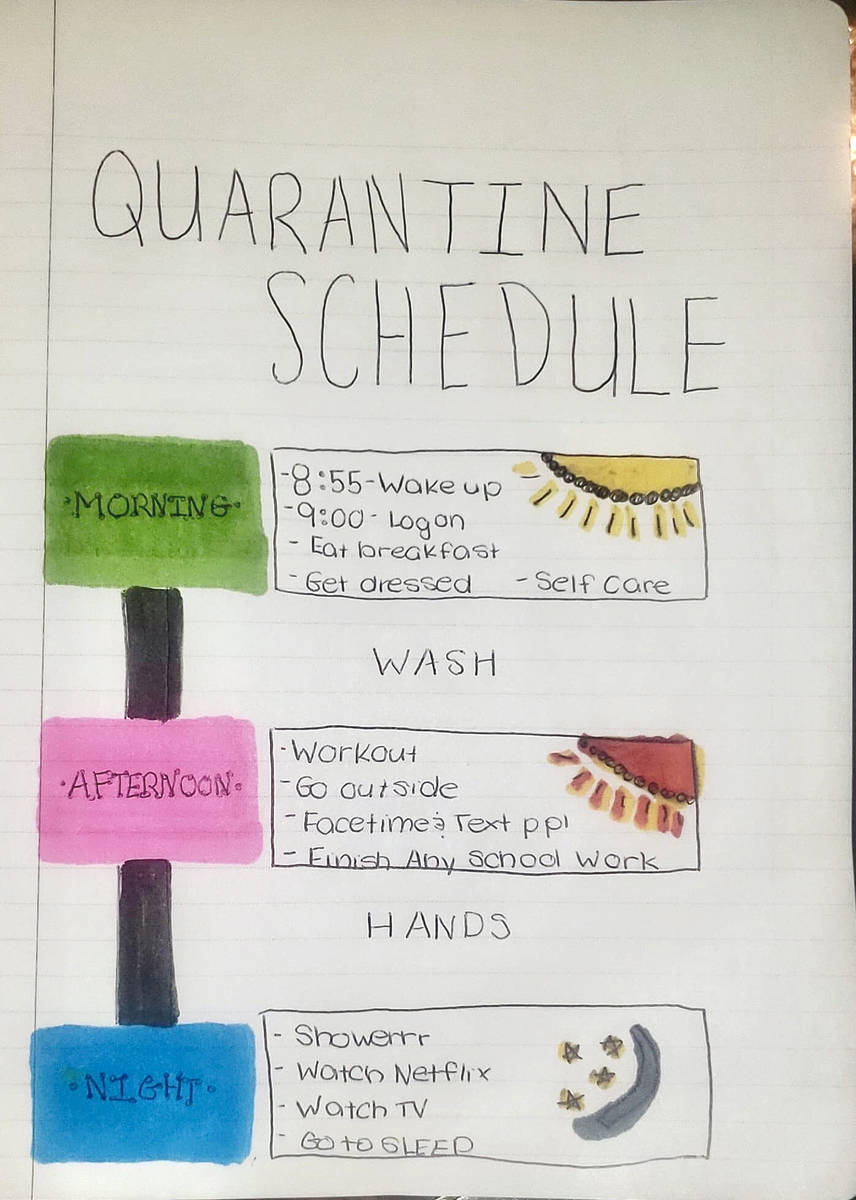 QUARANTINE
SCHEDULE
·MORNING·
-8:55-Wake up
-9:00- Log on
- Eat breakfast
- Get dressed - Self Care
WASH
·AFTERNOON·
·Workout
-Go outside
-Facetime & Text ppl
- Finish Any School Work
HANDS
·NIGHT·
- Showerrr
- Watch Netflix
- Watch TV
- GO to SLEEP